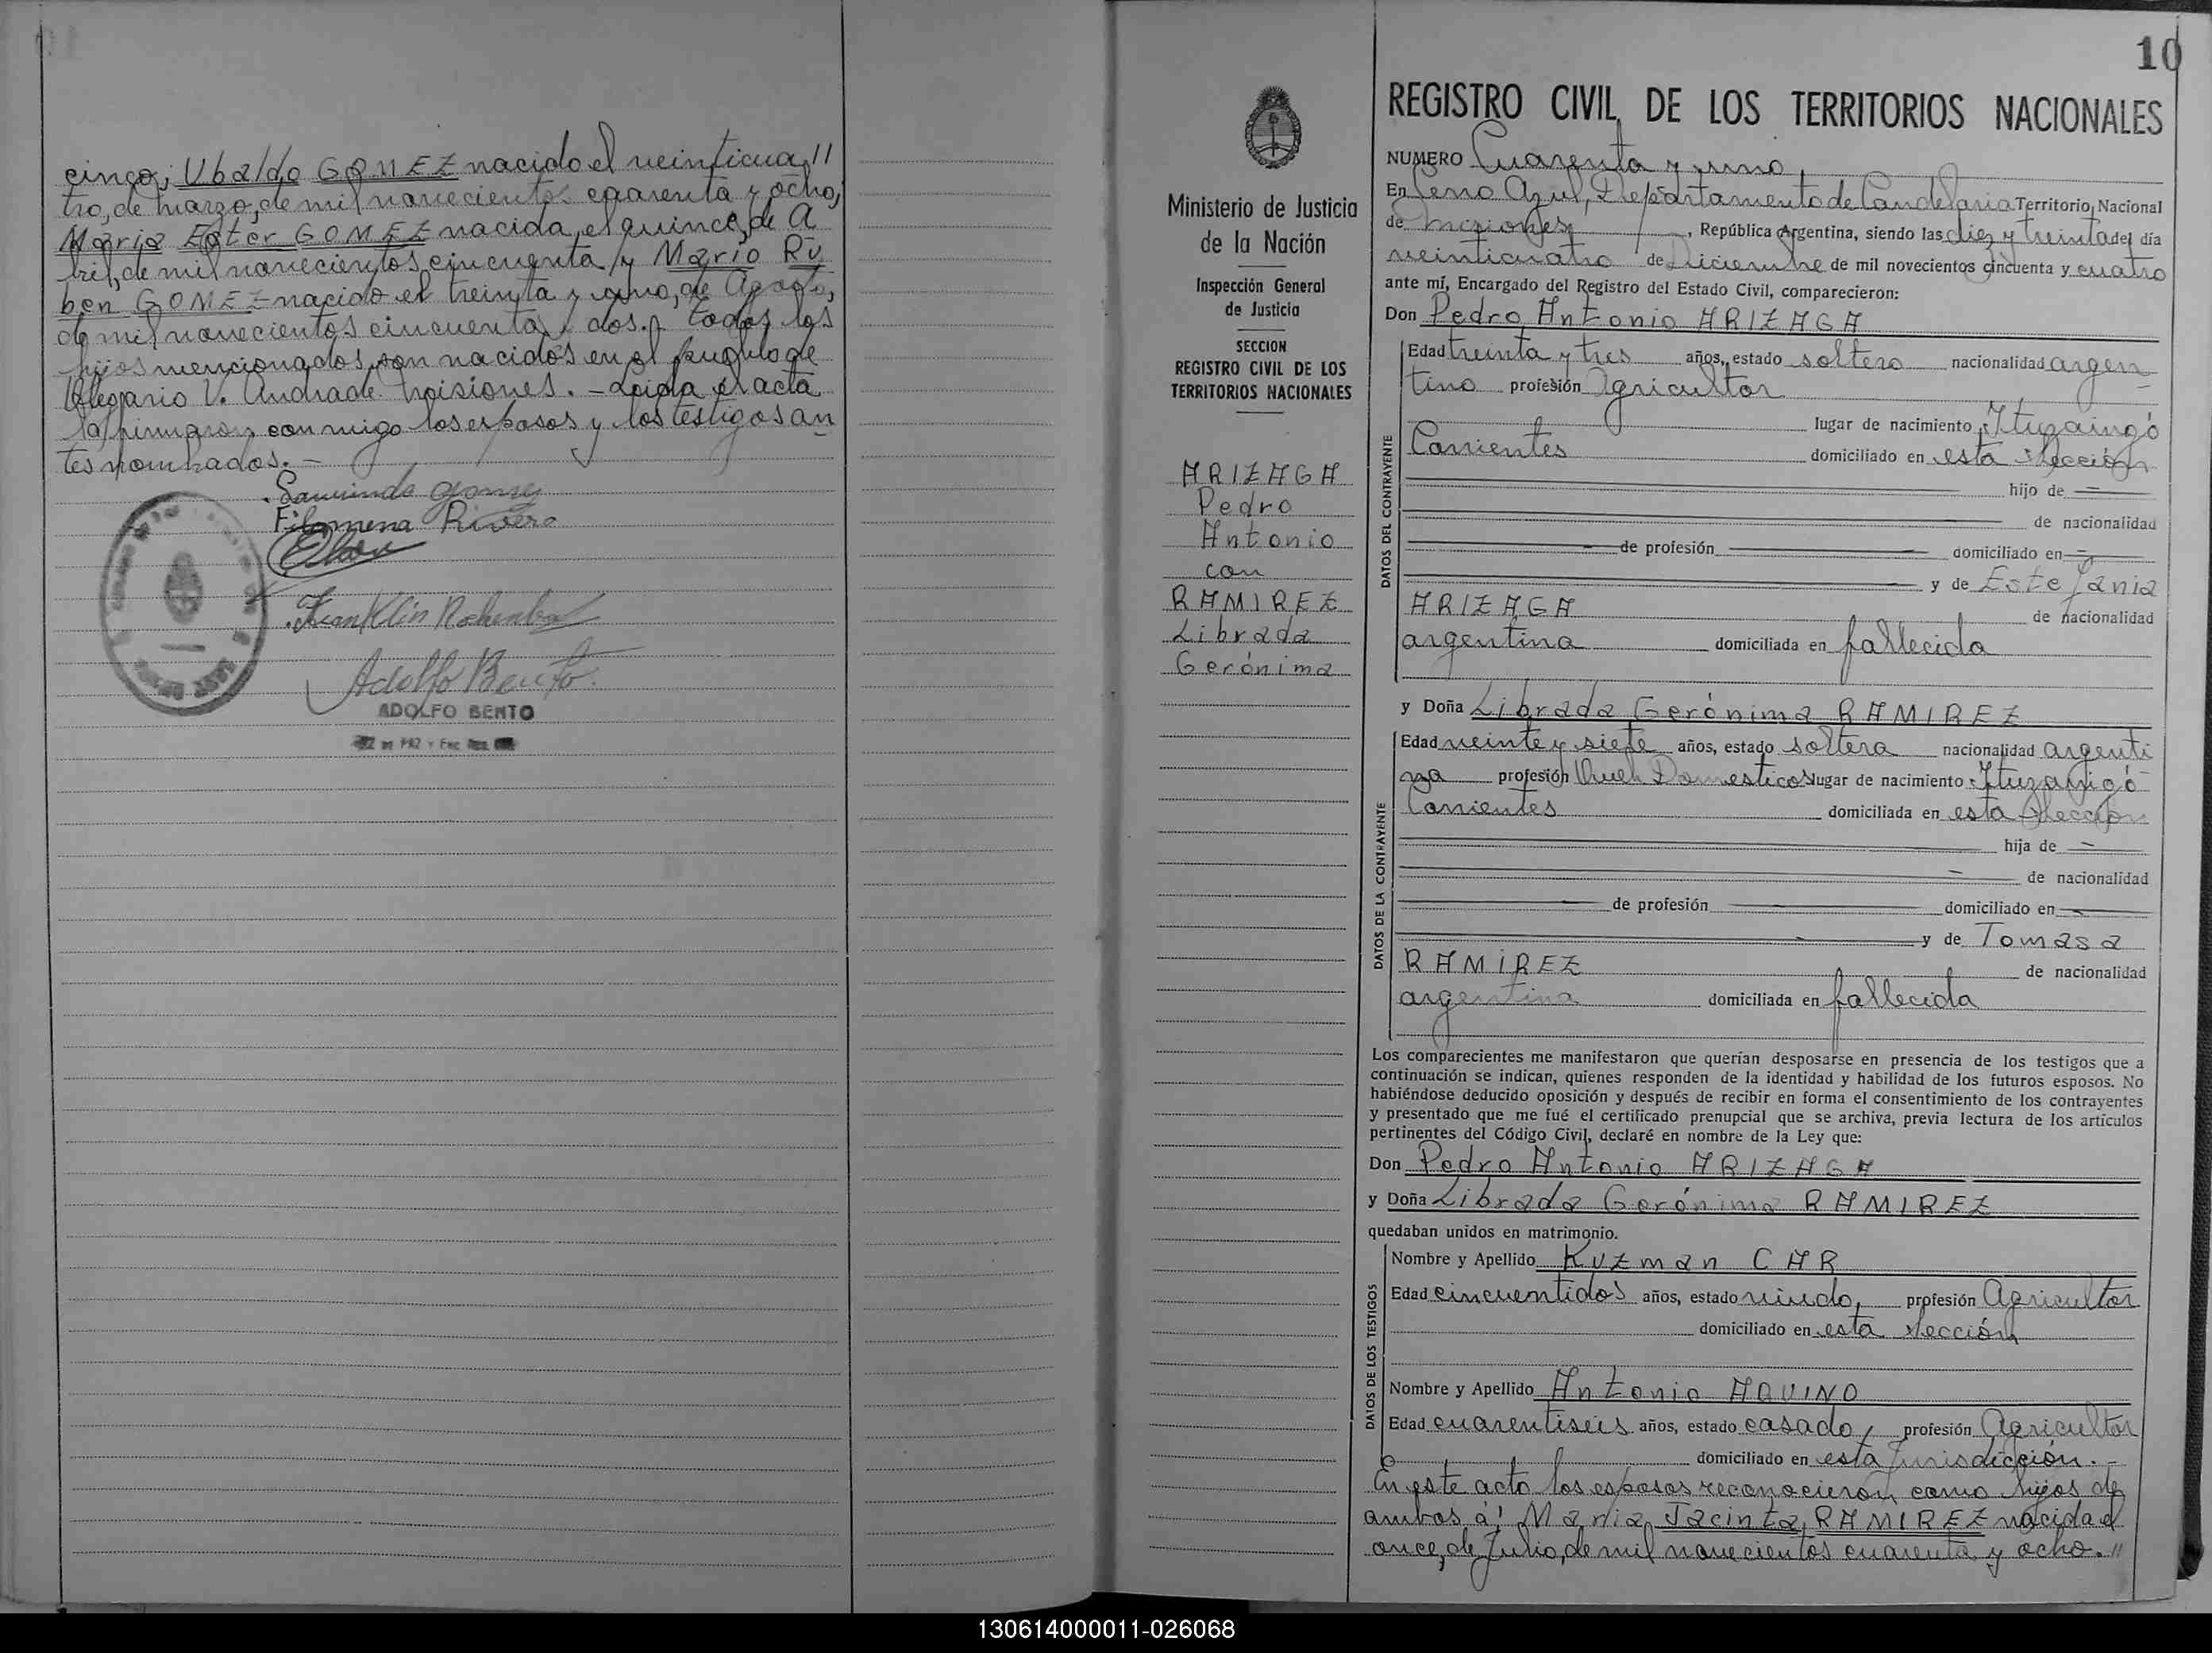 cinco; Ubaldo GOMEZ nacido el veinticua//
tro, de marzo, de mil novecientos cuarenta y ocho,
María Ester GOMEZ nacida, el quince, de A
bril, de mil novecientos cincuenta y Mario Ru
ben GOMEZ nacido el treinta y uno, de Agosto,
de mil novecientos cincuenta y dos. Todos los
hijos mencionados, son nacidos en el pueblo de
Olegario V. Andrade Misiones. - Leida el acta
la firmaron conmigo los esposos y los testigos an
tes nombrados. -
Filomena Rivero
Franklin
Adolfo Bento
ADOLFO BENTO
10
REGISTRO CIVIL DE LOS TERRITORIOS NACIONALES
Ministerio de Justicia
de la Nación
Inspección General
de Justicia
SECCION
REGISTRO CIVIL DE LOS
TERRITORIOS NACIONALES
ARIZAGA
Pedro
Antonio
con
RAMIREZ
Librada
Gerónima
NUMERO Cuarenta y uno
En Cerro Azul, Departamento de Candelaria Territorio Nacional
de Misiones, República Argentina, siendo las diez y treinta del día
veinticuatro de Diciembre de mil novecientos cincuenta y cuatro
ante mí, Encargado del Registro del Estado Civil, comparecieron:
Don Pedro Antonio ARIZAGA
DATOS DEL CONTRAYENTE
Edad treinta y tres años, estado soltero nacionalidad argen
tino profesión Agricultor
lugar de nacimiento Ituzaingó
Corrientes domiciliado en esta sección
hijo de —
de nacionalidad
de profesión — domiciliado en —
y de Estefania
ARIZAGA de nacionalidad
argentina domiciliada en fallecida
y Doña Librada Gerónima RAMIREZ
DATOS DE LA CONTRAYENTE
Edad veinte y siete años, estado soltera nacionalidad argenti
na profesión Queh. Domesticos lugar de nacimiento Ituzaingó
Corrientes domiciliada en esta sección
hija de —
de nacionalidad
de profesión — domiciliado en —
y de Tomasa
RAMIREZ de nacionalidad
argentina domiciliada en fallecida
Los comparecientes me manifestaron que querían desposarse en presencia de los testigos que a
continuación se indican, quienes responden de la identidad y habilidad de los futuros esposos. No
habiéndose deducido oposición y después de recibir en forma el consentimiento de los contrayentes
y presentado que me fué el certificado prenupcial que se archiva, previa lectura de los artículos
pertinentes del Código Civil, declaré en nombre de la Ley que:
Don Pedro Antonio ARIZAGA
y Doña Librada Gerónima RAMIREZ
quedaban unidos en matrimonio.
DATOS DE LOS TESTIGOS
Nombre y Apellido Kuzman CAR
Edad cincuentidos años, estado viudo, profesión Agricultor
domiciliado en esta sección
Nombre y Apellido Antonio AQUINO
Edad cuarentiseis años, estado casado, profesión Agricultor
domiciliado en esta Jurisdicción. -
En este acto los esposos reconocieron como hijos de
ambos á: Maria Jacinta RAMIREZ nacida el
once, de Julio, de mil novecientos cuarenta y ocho. //
130614000011-026068